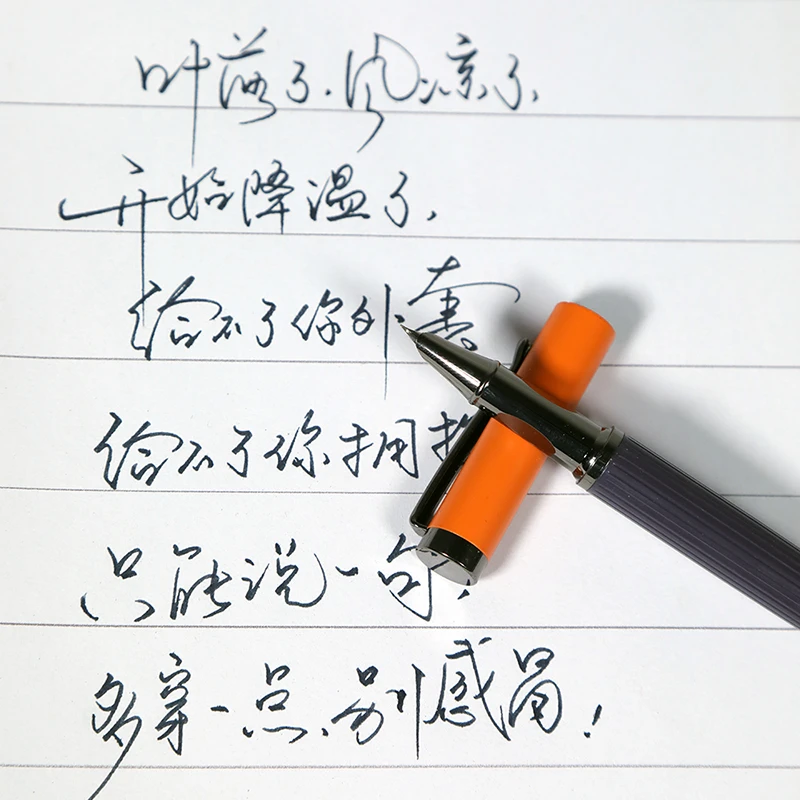 叶落了.风凉了.
开始降温了.
给不了你外套
给不了你拥
只能说一句,
多穿一点.别感冒!